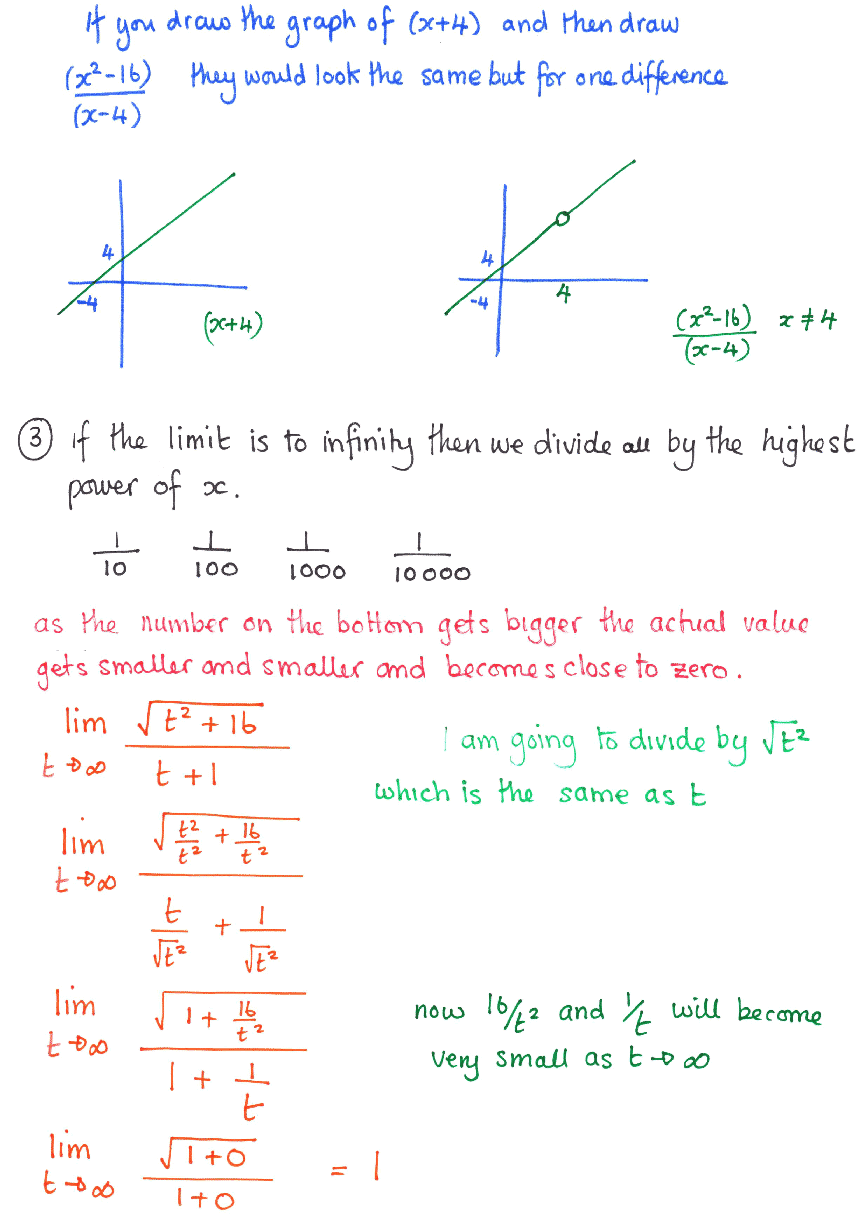 If you draw the graph of (x+4) and then draw
(x²-16)/(x-4) they would look the same but for one difference
4
-4
(x+4)
4
-4
4
(x²-16)/(x-4) x ≠ 4
③ if the limit is to infinity then we divide all by the highest
power of x.
1/10 1/100 1/1000 1/10000
as the number on the bottom gets bigger the actual value
gets smaller and smaller and becomes close to zero.
lim t→∞ √(t² + 16)/(t + 1)
I am going to divide by √t²
which is the same as t
lim t→∞ √(t²/t² + 16/t²)/(t/√t² + 1/√t²)
lim t→∞ √(1 + 16/t²)/(1 + 1/t)
now 16/t² and 1/t will become
very small as t → ∞
lim t→∞ √(1+0)/(1+0) = 1